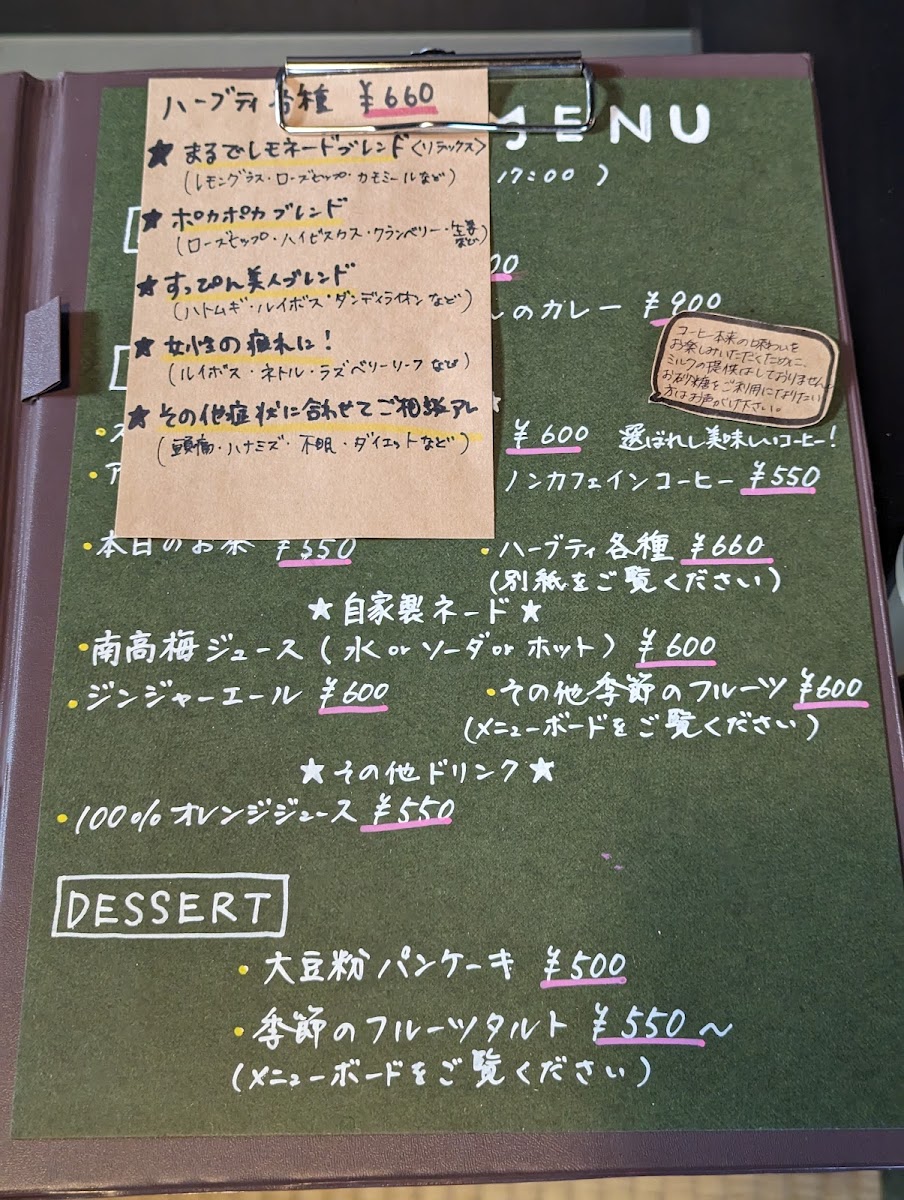 ハーブティ各種 ¥660
★ まるでレモネードブレンド〈リラックス〉
(レモングラス・ローズヒップ・カモミールなど)
★ ポカポカブレンド
(ローズヒップ・ハイビスカス・クランベリー・生姜など)
★ すっぴん美人ブレンド
(ハトムギ・ルイボス・ダンディライオンなど)
★ 女性の疲れに!
(ルイボス・ネトル・ラズベリーリーフなど)
★ その他症状に合わせてご相談アレ
(頭痛・ハナミズ・不眠・ダイエットなど)
MENU
17:00 )
のカレー ¥900
コーヒー本来の味わいを
お楽しみいただくために、
ミルクの提供はしておりません。
お砂糖をご利用になりたい
方はお声がけ下さい。
¥600 選ばれし美味しいコーヒー!
ノンカフェインコーヒー ¥550
・本日のお茶 ¥550
・ハーブティ各種 ¥660
(別紙をご覧ください)
★ 自家製ネード ★
・南高梅ジュース ( 水 or ソーダ or ホット ) ¥600
・ジンジャーエール ¥600
・その他季節のフルーツ ¥600
(メニューボードをご覧ください)
★ その他ドリンク ★
・100% オレンジジュース ¥550
DESSERT
・大豆粉パンケーキ ¥500
・季節のフルーツタルト ¥550~
(メニューボードをご覧ください)